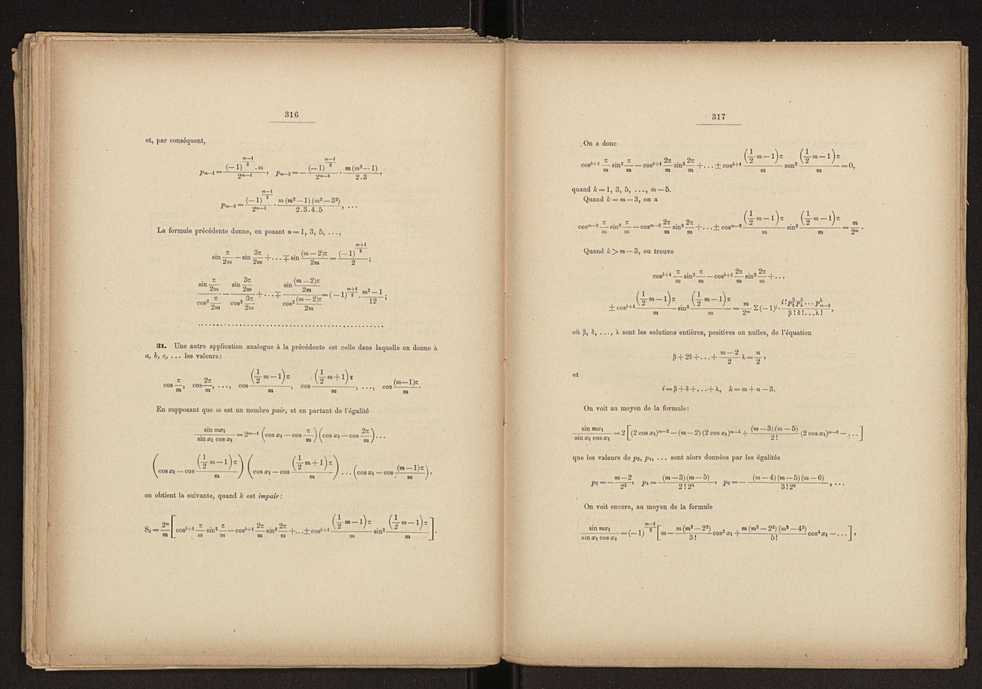 316
et, par conséquent,
p_{m-1} = \frac{(-1)^{\frac{m-1}{2}} . m}{2^{m-1}}, p_{m-3} = -\frac{(-1)^{\frac{m-1}{2}}}{2^{m-1}} . \frac{m(m^2-1)}{2.3},
\frac{(-1)^{\frac{m-1}{2}}}{2^{m-1}} . \frac{m(m^2-1)(m^2-3^2)}{2.3.4.5}, ...
La formule précédente donne, en posant n = 1, 3, 5, ...,
sin \frac{π}{2m} - sin \frac{3π}{2m} + ... ∓ sin \frac{(m-2)π}{2m} = \frac{(-1)^{\frac{m+1}{2}}}{2};
\frac{sin \frac{π}{2m}}{cos^2 \frac{π}{2m}} - \frac{sin \frac{3π}{2m}}{cos^2 \frac{3π}{2m}} + ... ∓ \frac{sin \frac{(m-2)π}{2m}}{cos^2 \frac{(m-2)π}{2m}} = (-1)^{\frac{m+1}{2}} . \frac{m^2-1}{12};
31. Une autre application analogue à la précédente est celle dans laquelle on donne à
a, b, c, ... les valeurs:
cos \frac{π}{m}, cos \frac{2π}{m}, ..., cos \frac{(\frac{1}{2}m-1)π}{m}, cos \frac{(\frac{1}{2}m+1)π}{m}, ..., cos \frac{(m-1)π}{m}.
En supposant que m est un nombre pair, et en partant de l'égalité
\frac{sin mx_1}{sin x_1 cos x_1} = 2^{m-1} (cos x_1 - cos \frac{π}{m}) (cos x_1 - cos \frac{2π}{m}) ...
(cos x_1 - cos \frac{(\frac{1}{2}m-1)π}{m}) (cos x_1 - cos \frac{(\frac{1}{2}m+1)π}{m}) ... (cos x_1 - cos \frac{(m-1)π}{m}),
on obtient la suivante, quand k est impair:
\frac{2^m}{m} [cos^{k+1} \frac{π}{m} sin^2 \frac{π}{m} - cos^{k+1} \frac{2π}{m} sin^2 \frac{2π}{m} + ... ± cos^{k+1} \frac{(\frac{1}{2}m-1)π}{m} sin^2 \frac{(\frac{1}{2}m-1)π}{m}].
317
On a donc
cos^{k+1} \frac{π}{m} sin^2 \frac{π}{m} - cos^{k+1} \frac{2π}{m} sin^2 \frac{2π}{m} + ... ± cos^{k+1} \frac{(\frac{1}{2}m-1)π}{m} sin^2 \frac{(\frac{1}{2}m-1)π}{m} = 0,
quand k = 1, 3, 5, ..., m - 5.
Quand k = m - 3, on a
cos^{m-2} \frac{π}{m} sin^2 \frac{π}{m} - cos^{m-2} \frac{2π}{m} sin^2 \frac{2π}{m} + ... ± cos^{m-2} \frac{(\frac{1}{2}m-1)π}{m} sin^2 \frac{(\frac{1}{2}m-1)π}{m} = \frac{m}{2^m}.
Quand k > m - 3, on trouve
cos^{k+1} \frac{π}{m} sin^2 \frac{π}{m} - cos^{k+1} \frac{2π}{m} sin^2 \frac{2π}{m} + ...
± cos^{k+1} \frac{(\frac{1}{2}m-1)π}{m} sin^2 \frac{(\frac{1}{2}m-1)π}{m} = \frac{m}{2^m} Σ(-1)^i
où β, δ, ..., λ sont les solutions entières, positives ou nulles, de l'équation
β + 2δ + ... + \frac{m-2}{2} λ = \frac{n}{2},
et
i = β + δ + ... + λ, k = m + n - 3.
On voit au moyen de la formule:
\frac{sin mx_1}{sin x_1 cos x_1} = 2 [(2 cos x_1)^{m-2} - (m-2)(2 cos x_1)^{m-4} + \frac{(m-3)(m-5)}{2!} (2 cos x_1)^{m-6} - ...]
que les valeurs de p_2, p_4, ... sont alors données par les égalités
p_2 = -\frac{m-2}{2^2}, p_4 = \frac{(m-3)(m-5)}{2! 2^4}, p_6 = -\frac{(m-4)(m-5)(m-6)}{3! 2^6}, ...
On voit encore, au moyen de la formule
\frac{sin mx_1}{sin x_1 cos x_1} = (-1)^{\frac{m-2}{2}} [m - \frac{m(m^2-2^2)}{3!} cos^2 x_1 + \frac{m(m^2-2^2)(m^2-4^2)}{5!} cos^4 x_1 - ...],